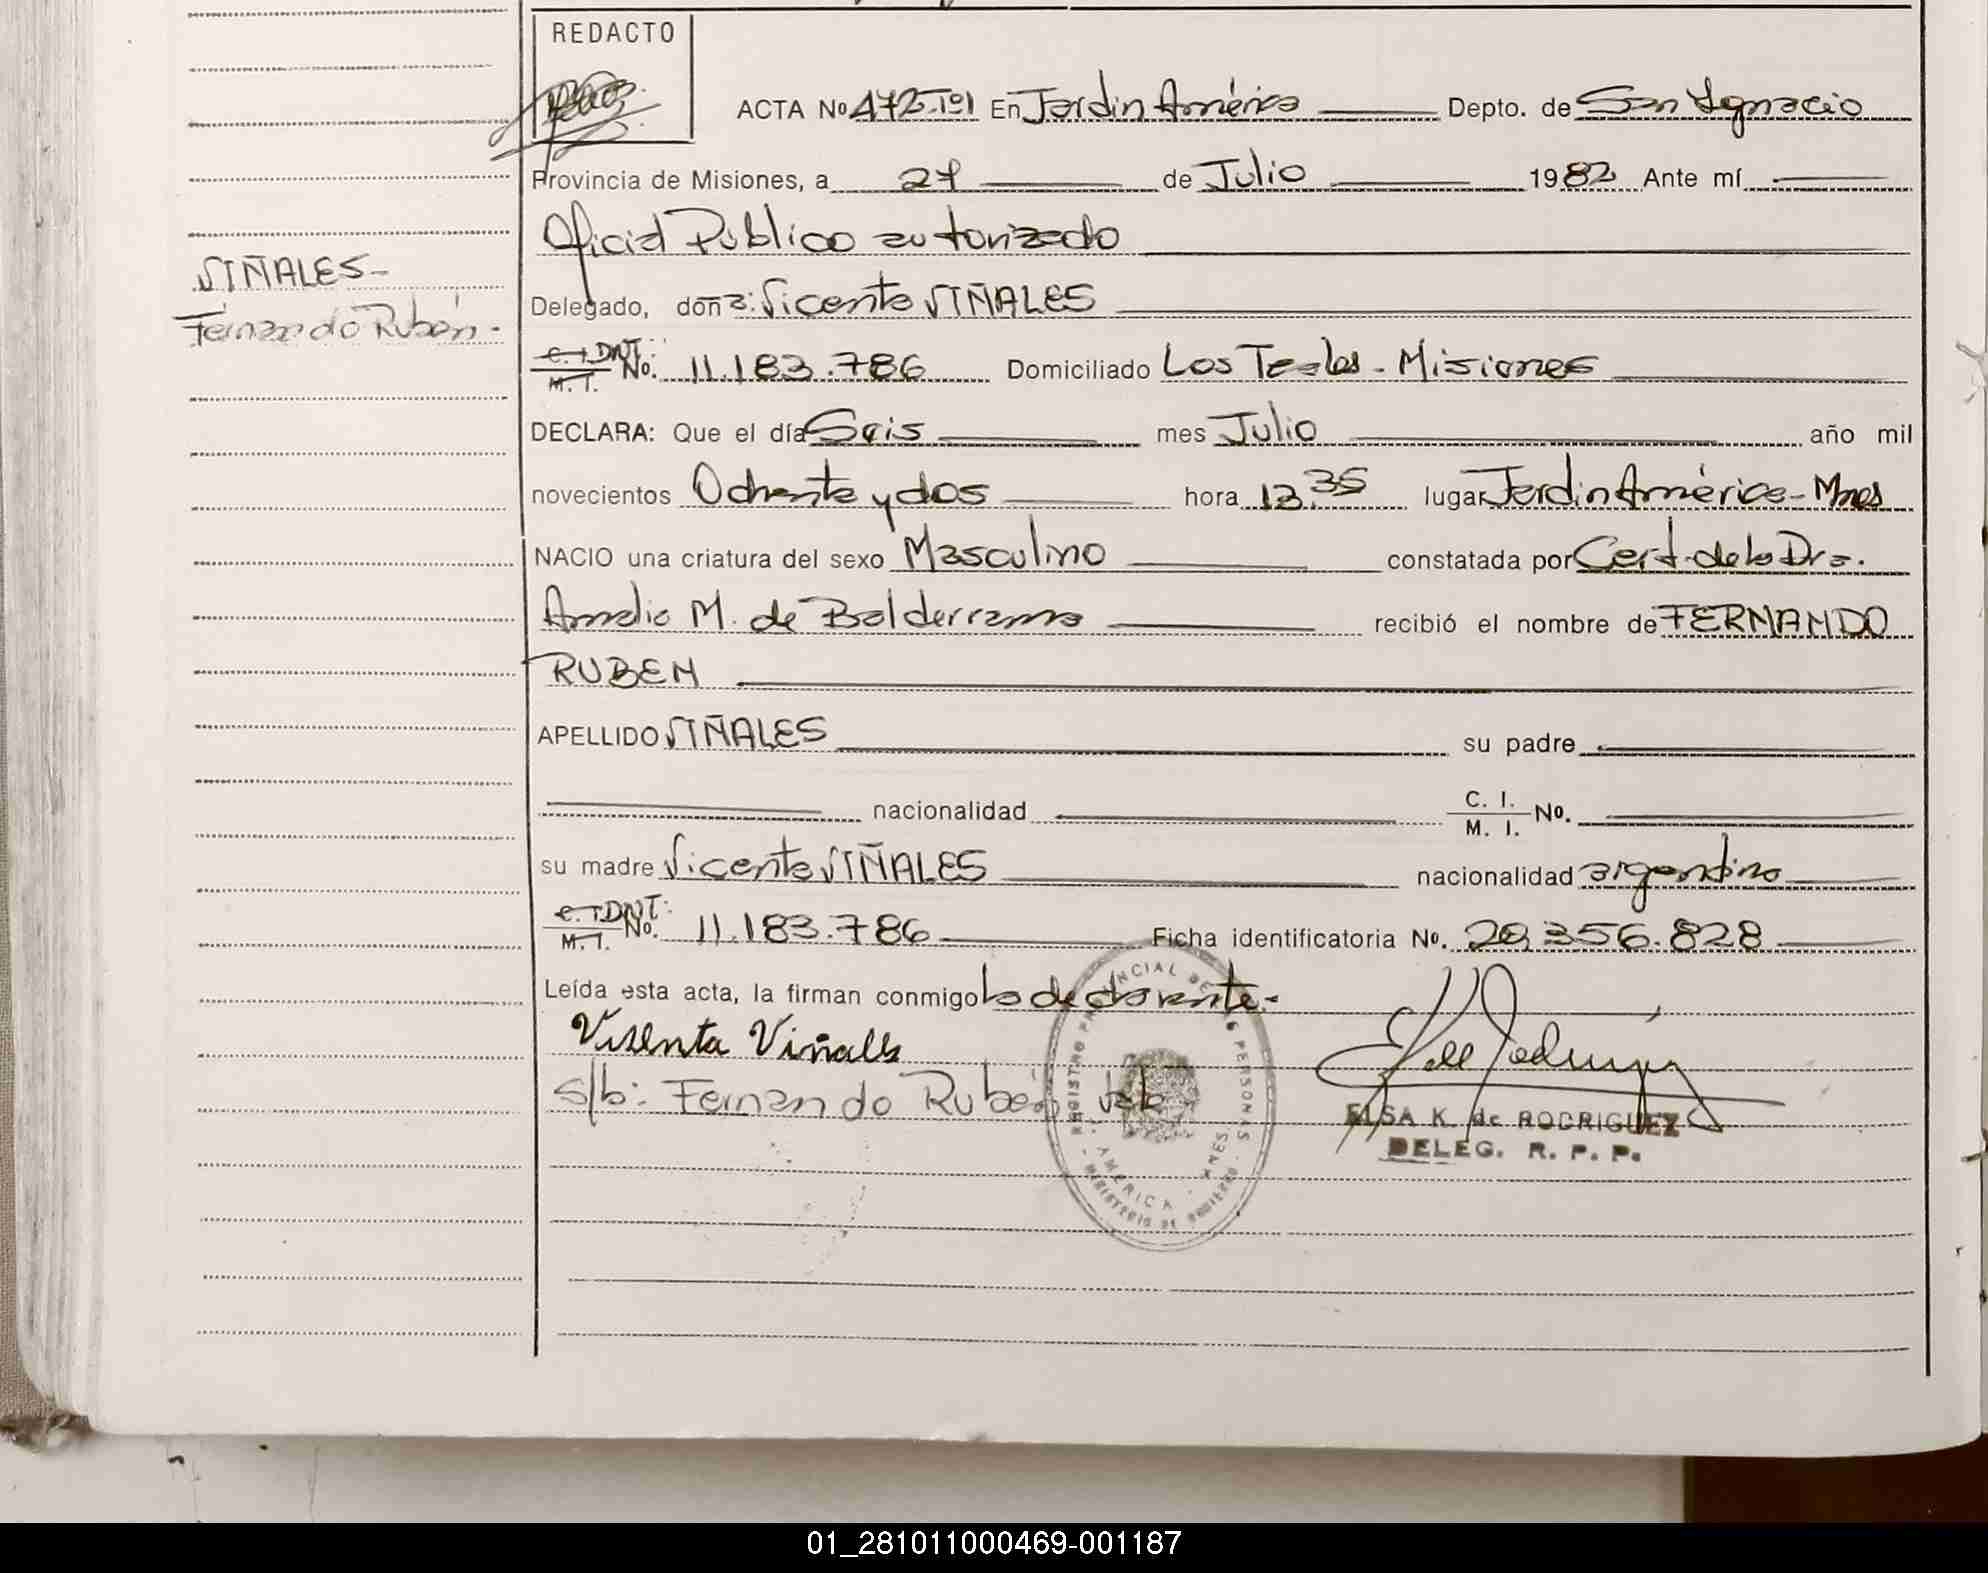 REDACTO
ACTA No 472-Tº1 En Jardin América Depto. de San Ignacio
Provincia de Misiones, a 27 de Julio 1982 Ante mí
Oficial Público autorizado
VIÑALES-
Delegado, don a: Vicenta VIÑALES
Fernando Rubén-
C. I. DNI: M. I. No. 11.183.786 Domiciliado Los Teales - Misiones
DECLARA: Que el día Seis mes Julio año mil
novecientos Ochenta y dos hora 13,35 lugar Jardin América - Mnes
NACIO una criatura del sexo Masculino constatada por Cert. de la Dra.
Amalia M. de Balderrama recibió el nombre de FERNANDO
RUBEN
APELLIDO VIÑALES su padre
nacionalidad C. I. M. I. No.
su madre Vicenta VIÑALES nacionalidad argentina
C. I. DNI: M. I. No. 11.183.786 Ficha identificatoria No. 29.356.828
Leída esta acta, la firman conmigo la declarante.-
Visenta Viñales
s/b: Fernando Rubén Vale
REGISTRO PROVINCIAL DE LAS PERSONAS
AMERICA - MNES
MINISTERIO DE GOBIERNO
ELSA K. de RODRIGUEZ
DELEG. R. P. P.
01_281011000469-001187